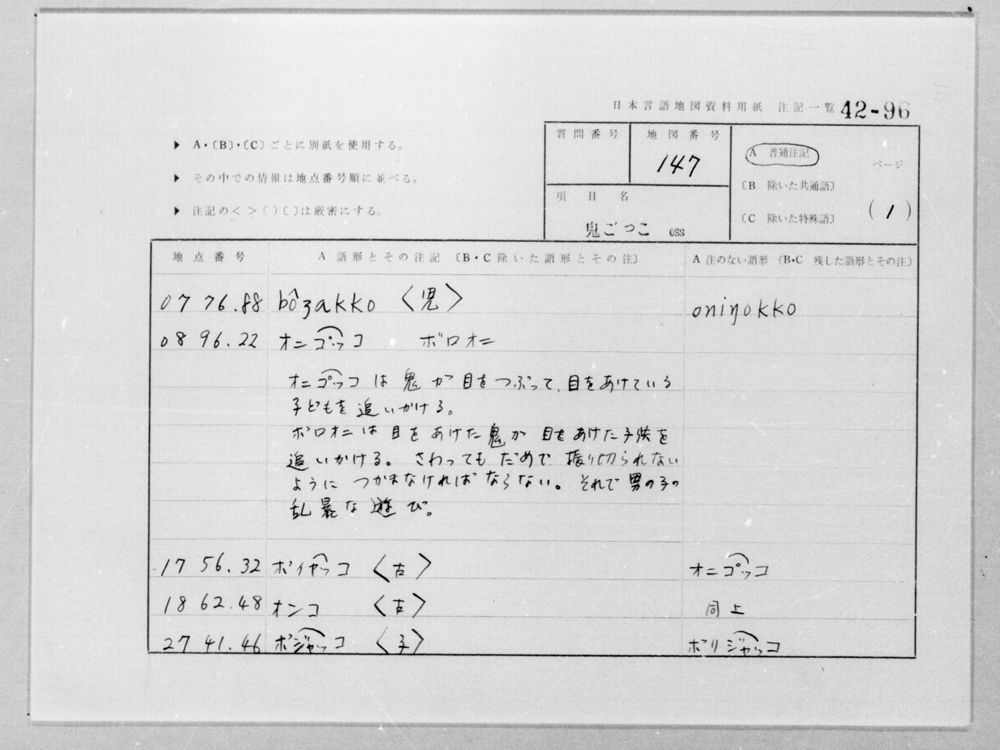 日本言語地図資料用紙 注記一覧 42-96
▶ A・〔B〕・〔C〕ごとに別紙を使用する。
▶ その中での情報は地点番号順に並べる。
▶ 注記の< >( )〔 〕は厳密にする。
質問番号 地図番号 A 普通注記 ページ
147
〔B 除いた共通語〕
項目名
〔C 除いた特殊語〕 (1)
鬼ごっこ 088
地点番号 A 語形とその注記〔B・C除いた語形とその注〕 A 注のない語形〔B・C 残した語形とその注〕
07 76.88 bôʒakko 〈児〉 oniŋokko
08 96.22 オニゴッコ ボロオニ
オニゴッコは鬼が目をつぶって、目をあけている
子どもを追いかける。
ボロオニは目をあけた鬼が目をあけた子供を
追いかける。さわってもだめで振り切られない
ようにつかまなければならない。それで男の子の
乱暴な遊び。
17 56.32 ボイヤッコ 〈古〉 オニゴッコ
18 62.48 オンコ 〈古〉 同上
27 41.46 ボジャッコ 〈子〉 ボリジャッコ